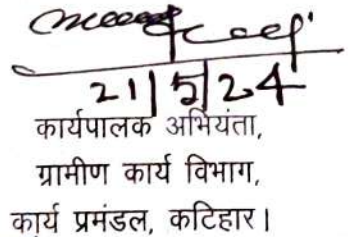 21/5/24
कार्यपालक अभियंता,
ग्रामीण कार्य विभाग,
कार्य प्रमंडल, कटिहार।